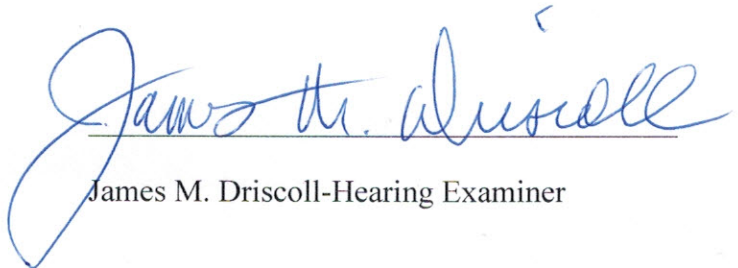 James M. Driscoll
James M. Driscoll-Hearing Examiner